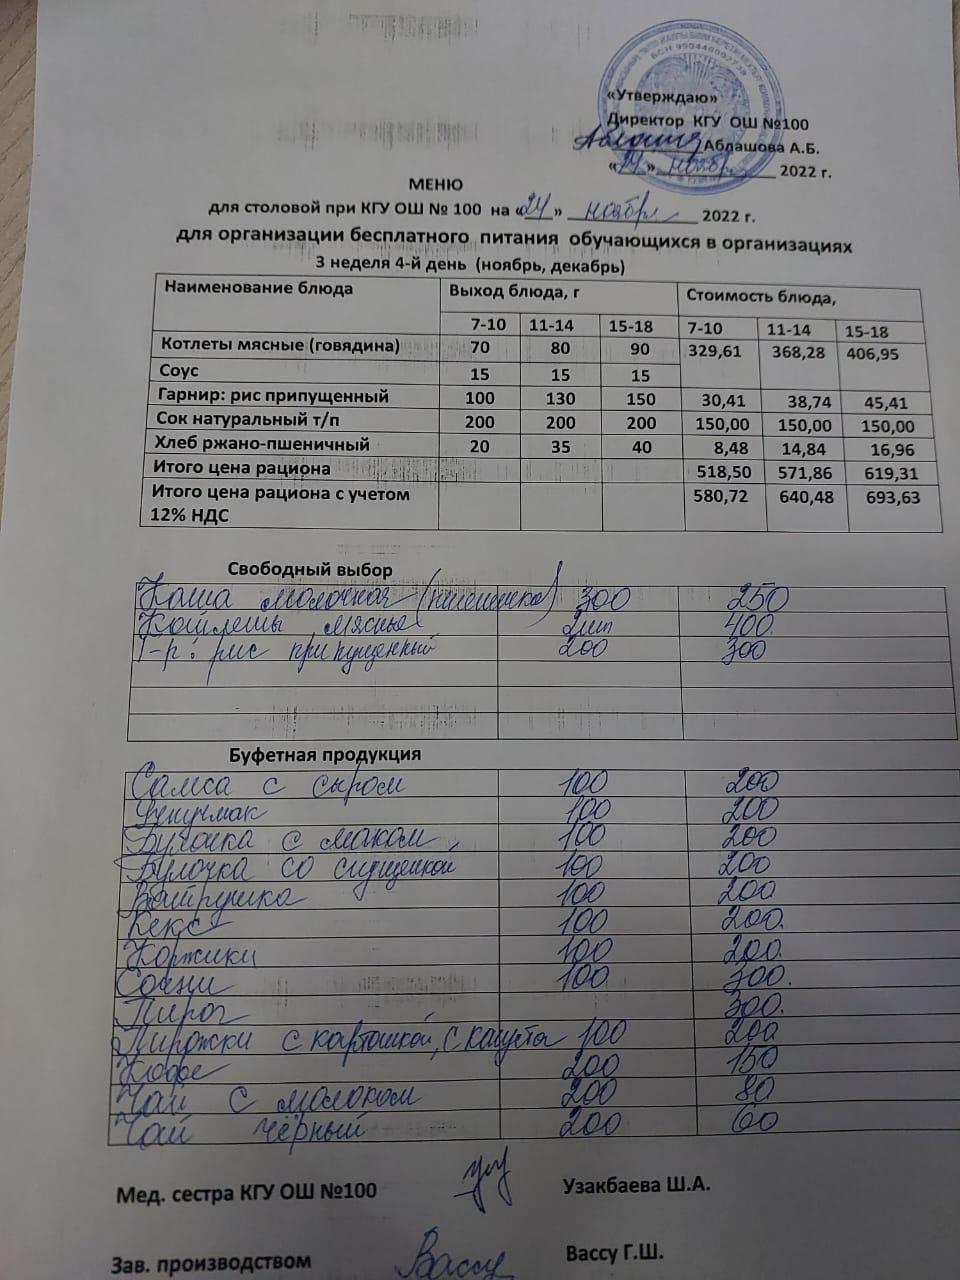 БСН 990440002738
«Утверждаю»
Директор КГУ ОШ №100
Аблашова А.Б.
«24» ноября 2022 г.
МЕНЮ
для столовой при КГУ ОШ № 100 на «24» ноября 2022 г.
для организации бесплатного питания обучающихся в организациях
3 неделя 4-й день (ноябрь, декабрь)
Наименование блюда Выход блюда, г Стоимость блюда,
7-10 11-14 15-18 7-10 11-14 15-18
Котлеты мясные (говядина) 70 80 90 329,61 368,28 406,95
Соус 15 15 15
Гарнир: рис припущенный 100 130 150 30,41 38,74 45,41
Сок натуральный т/п 200 200 200 150,00 150,00 150,00
Хлеб ржано-пшеничный 20 35 40 8,48 14,84 16,96
Итого цена рациона 518,50 571,86 619,31
Итого цена рациона с учетом 580,72 640,48 693,63
12% НДС
Свободный выбор
Каша молочная 300 250
Котлеты мясные 2шт 400
Г-р: рис припущенный 200 300
Буфетная продукция
Самса с сыром 100 200
100 200
Булочка с маком 100 200
Булочка со сгущенкой 100 200
Ватрушка 100 200
Кекс 100 200
Коржики 100 200
Сочни 100 300
Пирог 300
Пирожки с картошкой, с капуста 100 200
Кофе 200 150
Чай с молоком 200 80
Чай чёрный 200 60
Мед. сестра КГУ ОШ №100 Узакбаева Ш.А.
Зав. производством Вассу Вассу Г.Ш.